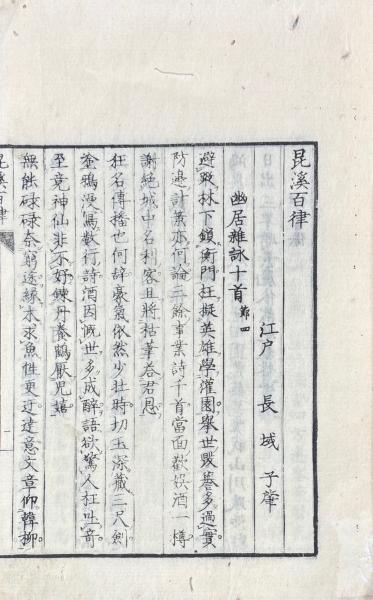 昆溪百律
江戸 長域子肇
幽居雜詠十首 節四
避蹤林下鎖衡門枉擬英雄學灌園擧世毀譽多過實
防邊計策亦何論三餘事業詩千首當面歡娯酒一樽
謝絶城中名利客且將枯筆答君恩
狂名傳播也何辭豪氣依然少壯時切玉深藏三尺劍
塗鴉漫寫數行詩酒因慨世多成醉語欲驚人枉吐奇
至竟神仙非不好錬丹養鶴厭兒嬉
無能碌碌奈窮途緣木求魚性更迂達意文章仰韓柳
昆溪百律
一